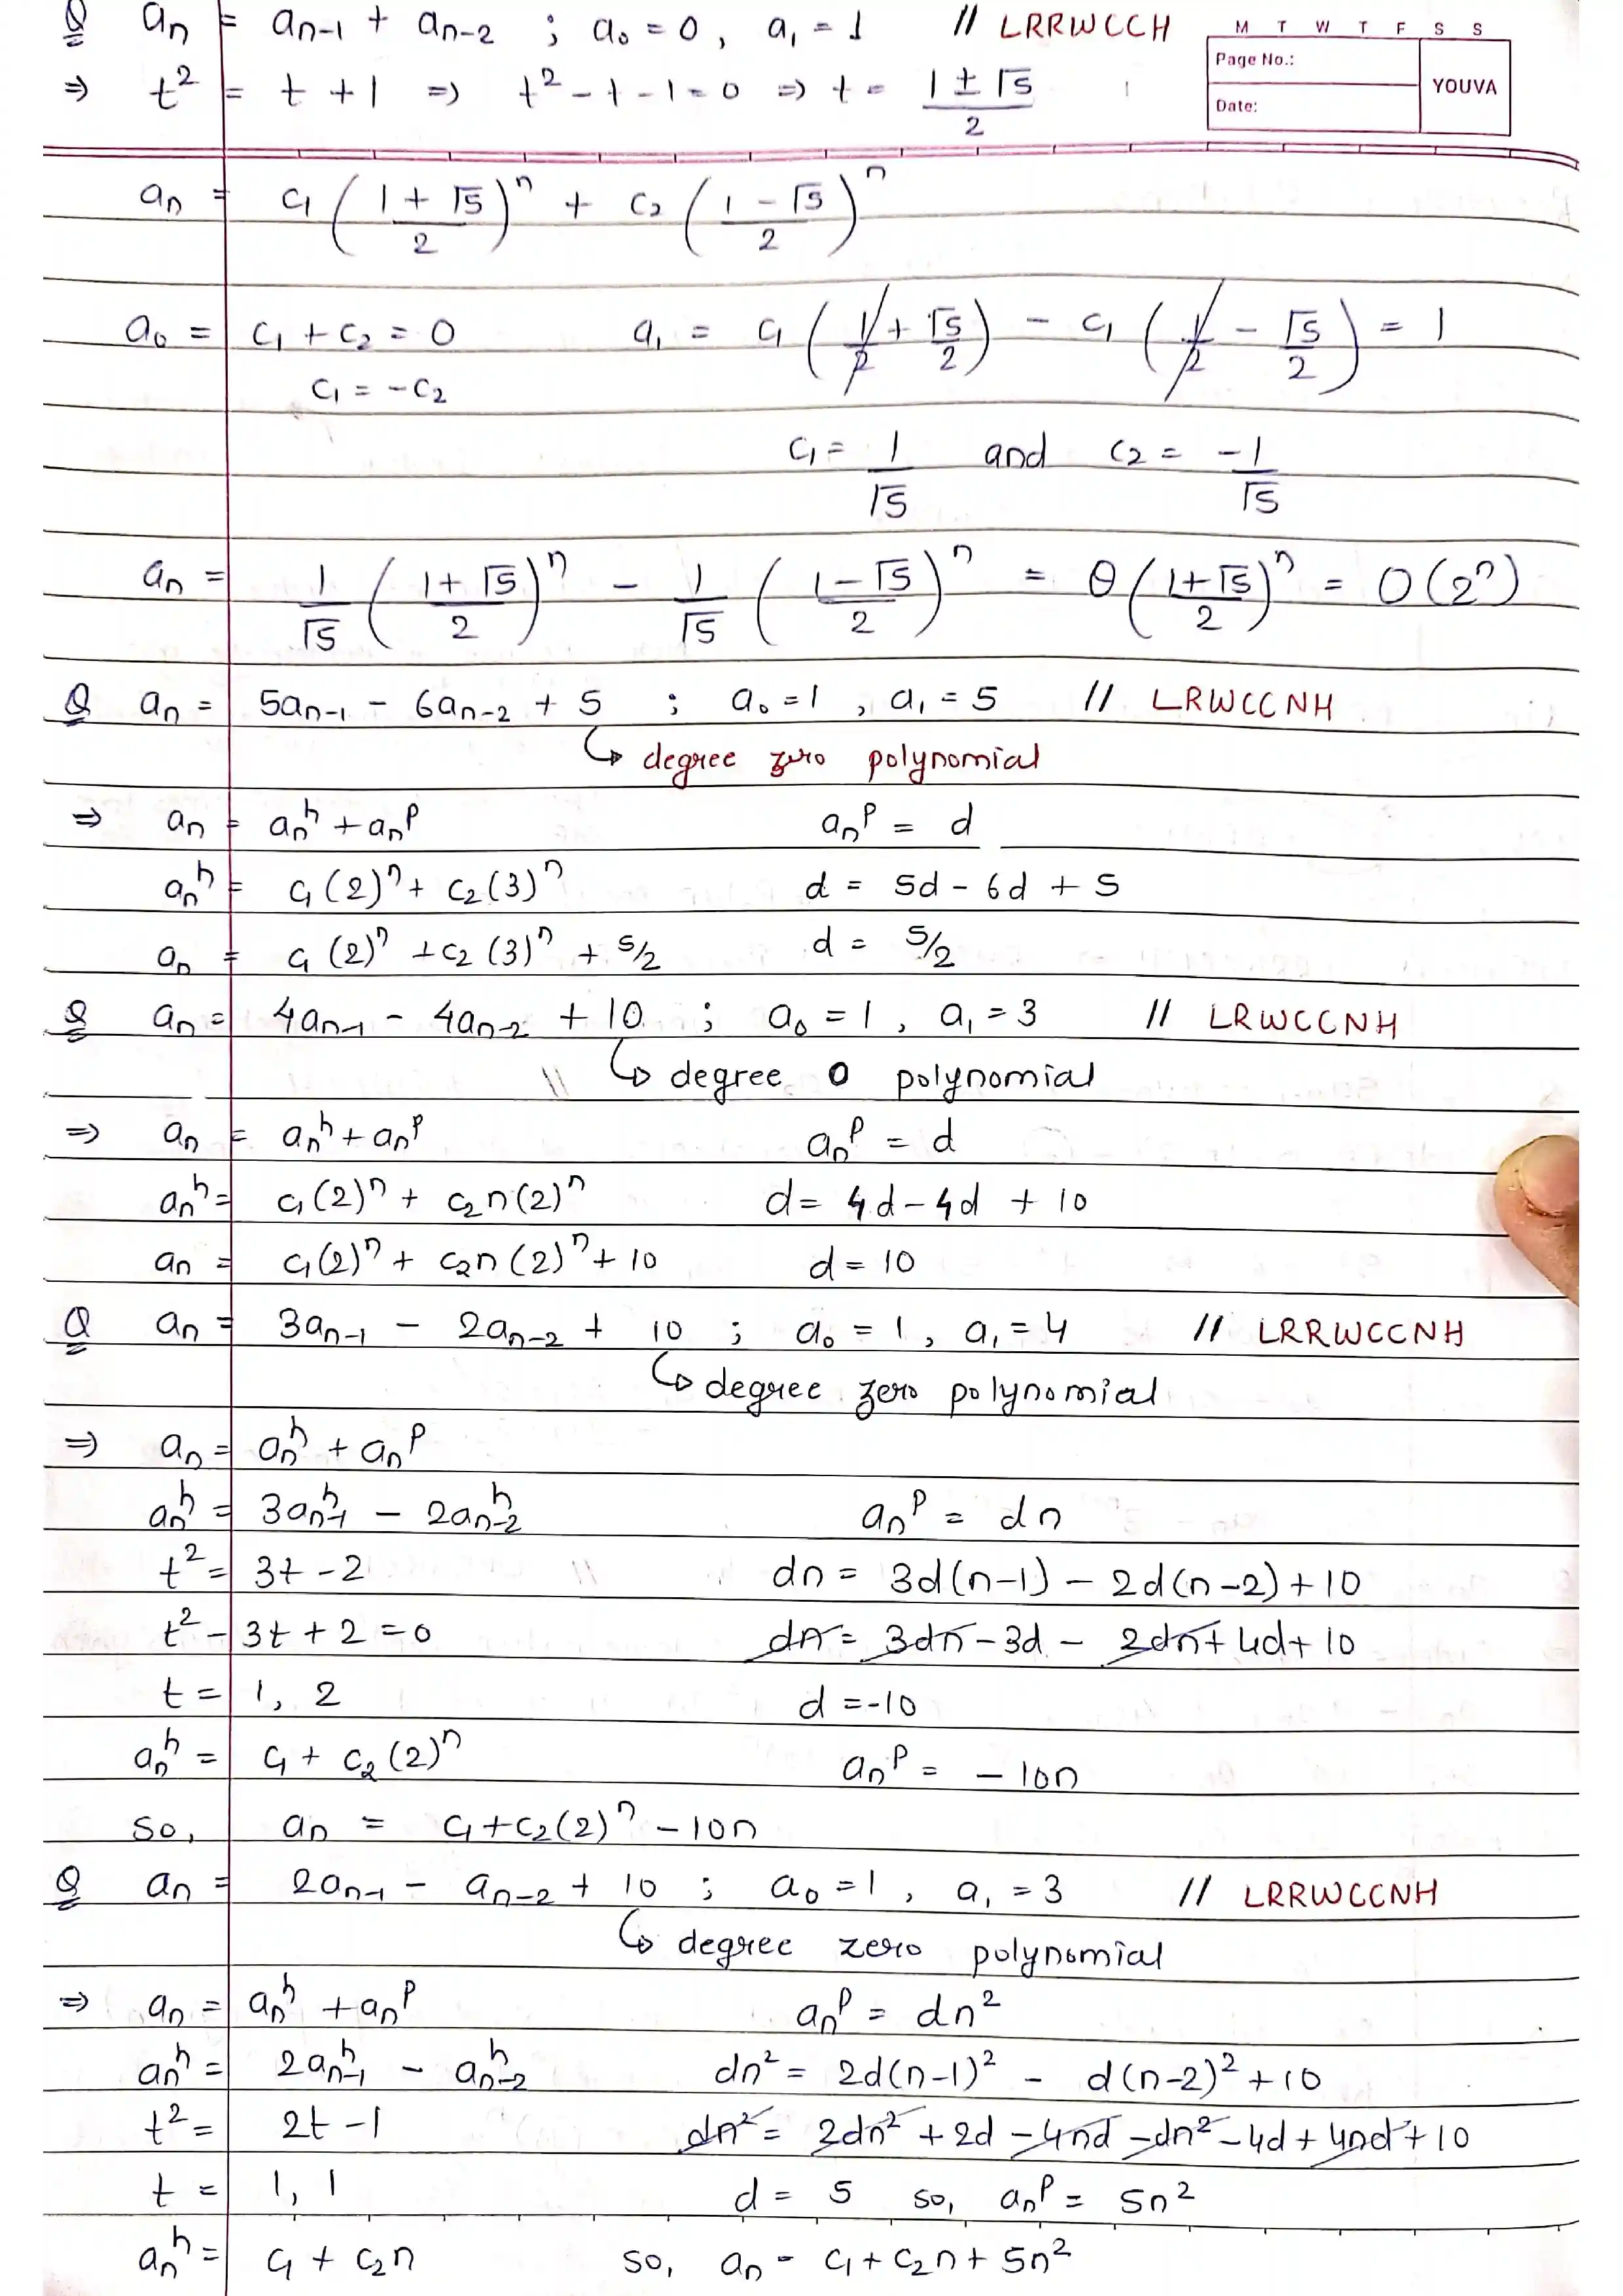 Q aₙ = aₙ₋₁ + aₙ₋₂ ; a₀ = 0, a₁ = 1 // LRRWCCH
M T W T F S S
Page No.:
YOUVA
Date:
⇒ t² = t + 1 ⇒ t² - t - 1 = 0 ⇒ t = (1 ± √5)/2
aₙ = c₁((1 + √5)/2)ⁿ + c₂((1 - √5)/2)ⁿ
a₀ = c₁ + c₂ = 0 a₁ = c₁(1/2 + √5/2) - c₁(1/2 - √5/2) = 1
c₁ = -c₂
c₁ = 1/√5 and c₂ = -1/√5
aₙ = 1/√5 ((1 + √5)/2)ⁿ - 1/√5 ((1 - √5)/2)ⁿ = θ((1 + √5)/2)ⁿ = O(2ⁿ)
Q aₙ = 5aₙ₋₁ - 6aₙ₋₂ + 5 ; a₀ = 1, a₁ = 5 // LRWCCNH
↳ degree zero polynomial
⇒ aₙ = aₙʰ + aₙᵖ aₙᵖ = d
aₙʰ = c₁(2)ⁿ + c₂(3)ⁿ d = 5d - 6d + 5
aₙ = c₁(2)ⁿ + c₂(3)ⁿ + 5/2 d = 5/2
Q aₙ = 4aₙ₋₁ - 4aₙ₋₂ + 10 ; a₀ = 1, a₁ = 3 // LRWCCNH
↳ degree 0 polynomial
⇒ aₙ = aₙʰ + aₙᵖ aₙᵖ = d
aₙʰ = c₁(2)ⁿ + c₂n(2)ⁿ d = 4d - 4d + 10
aₙ = c₁(2)ⁿ + c₂n(2)ⁿ + 10 d = 10
Q aₙ = 3aₙ₋₁ - 2aₙ₋₂ + 10 ; a₀ = 1, a₁ = 4 // LRRWCCNH
↳ degree zero polynomial
⇒ aₙ = aₙʰ + aₙᵖ
aₙʰ = 3aₙ₋₁ʰ - 2aₙ₋₂ʰ aₙᵖ = dn
t² = 3t - 2 dn = 3d(n-1) - 2d(n-2) + 10
t² - 3t + 2 = 0 dn = 3dn - 3d - 2dn + 4d + 10
t = 1, 2 d = -10
aₙʰ = c₁ + c₂(2)ⁿ aₙᵖ = -10n
so, aₙ = c₁ + c₂(2)ⁿ - 10n
Q aₙ = 2aₙ₋₁ - aₙ₋₂ + 10 ; a₀ = 1, a₁ = 3 // LRRWCCNH
↳ degree zero polynomial
⇒ aₙ = aₙʰ + aₙᵖ aₙᵖ = dn²
aₙʰ = 2aₙ₋₁ʰ - aₙ₋₂ʰ dn² = 2d(n-1)² - d(n-2)² + 10
t² = 2t - 1 dn² = 2dn² + 2d - 4nd - dn² - 4d + 4nd + 10
t = 1, 1 d = 5 so, aₙᵖ = 5n²
aₙʰ = c₁ + c₂n so, aₙ = c₁ + c₂n + 5n²